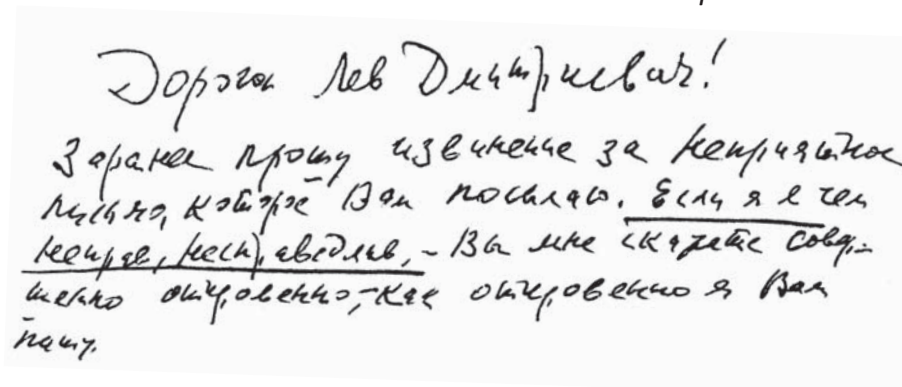 Дорогой Лев Дмитриевич!
Заранее прошу извинение за неприятное
письмо, которое Вам посылаю. Если я в чем
неправ, несправедлив, – Вы мне скажете совер-
шенно откровенно, – как откровенно я Вам
пишу.